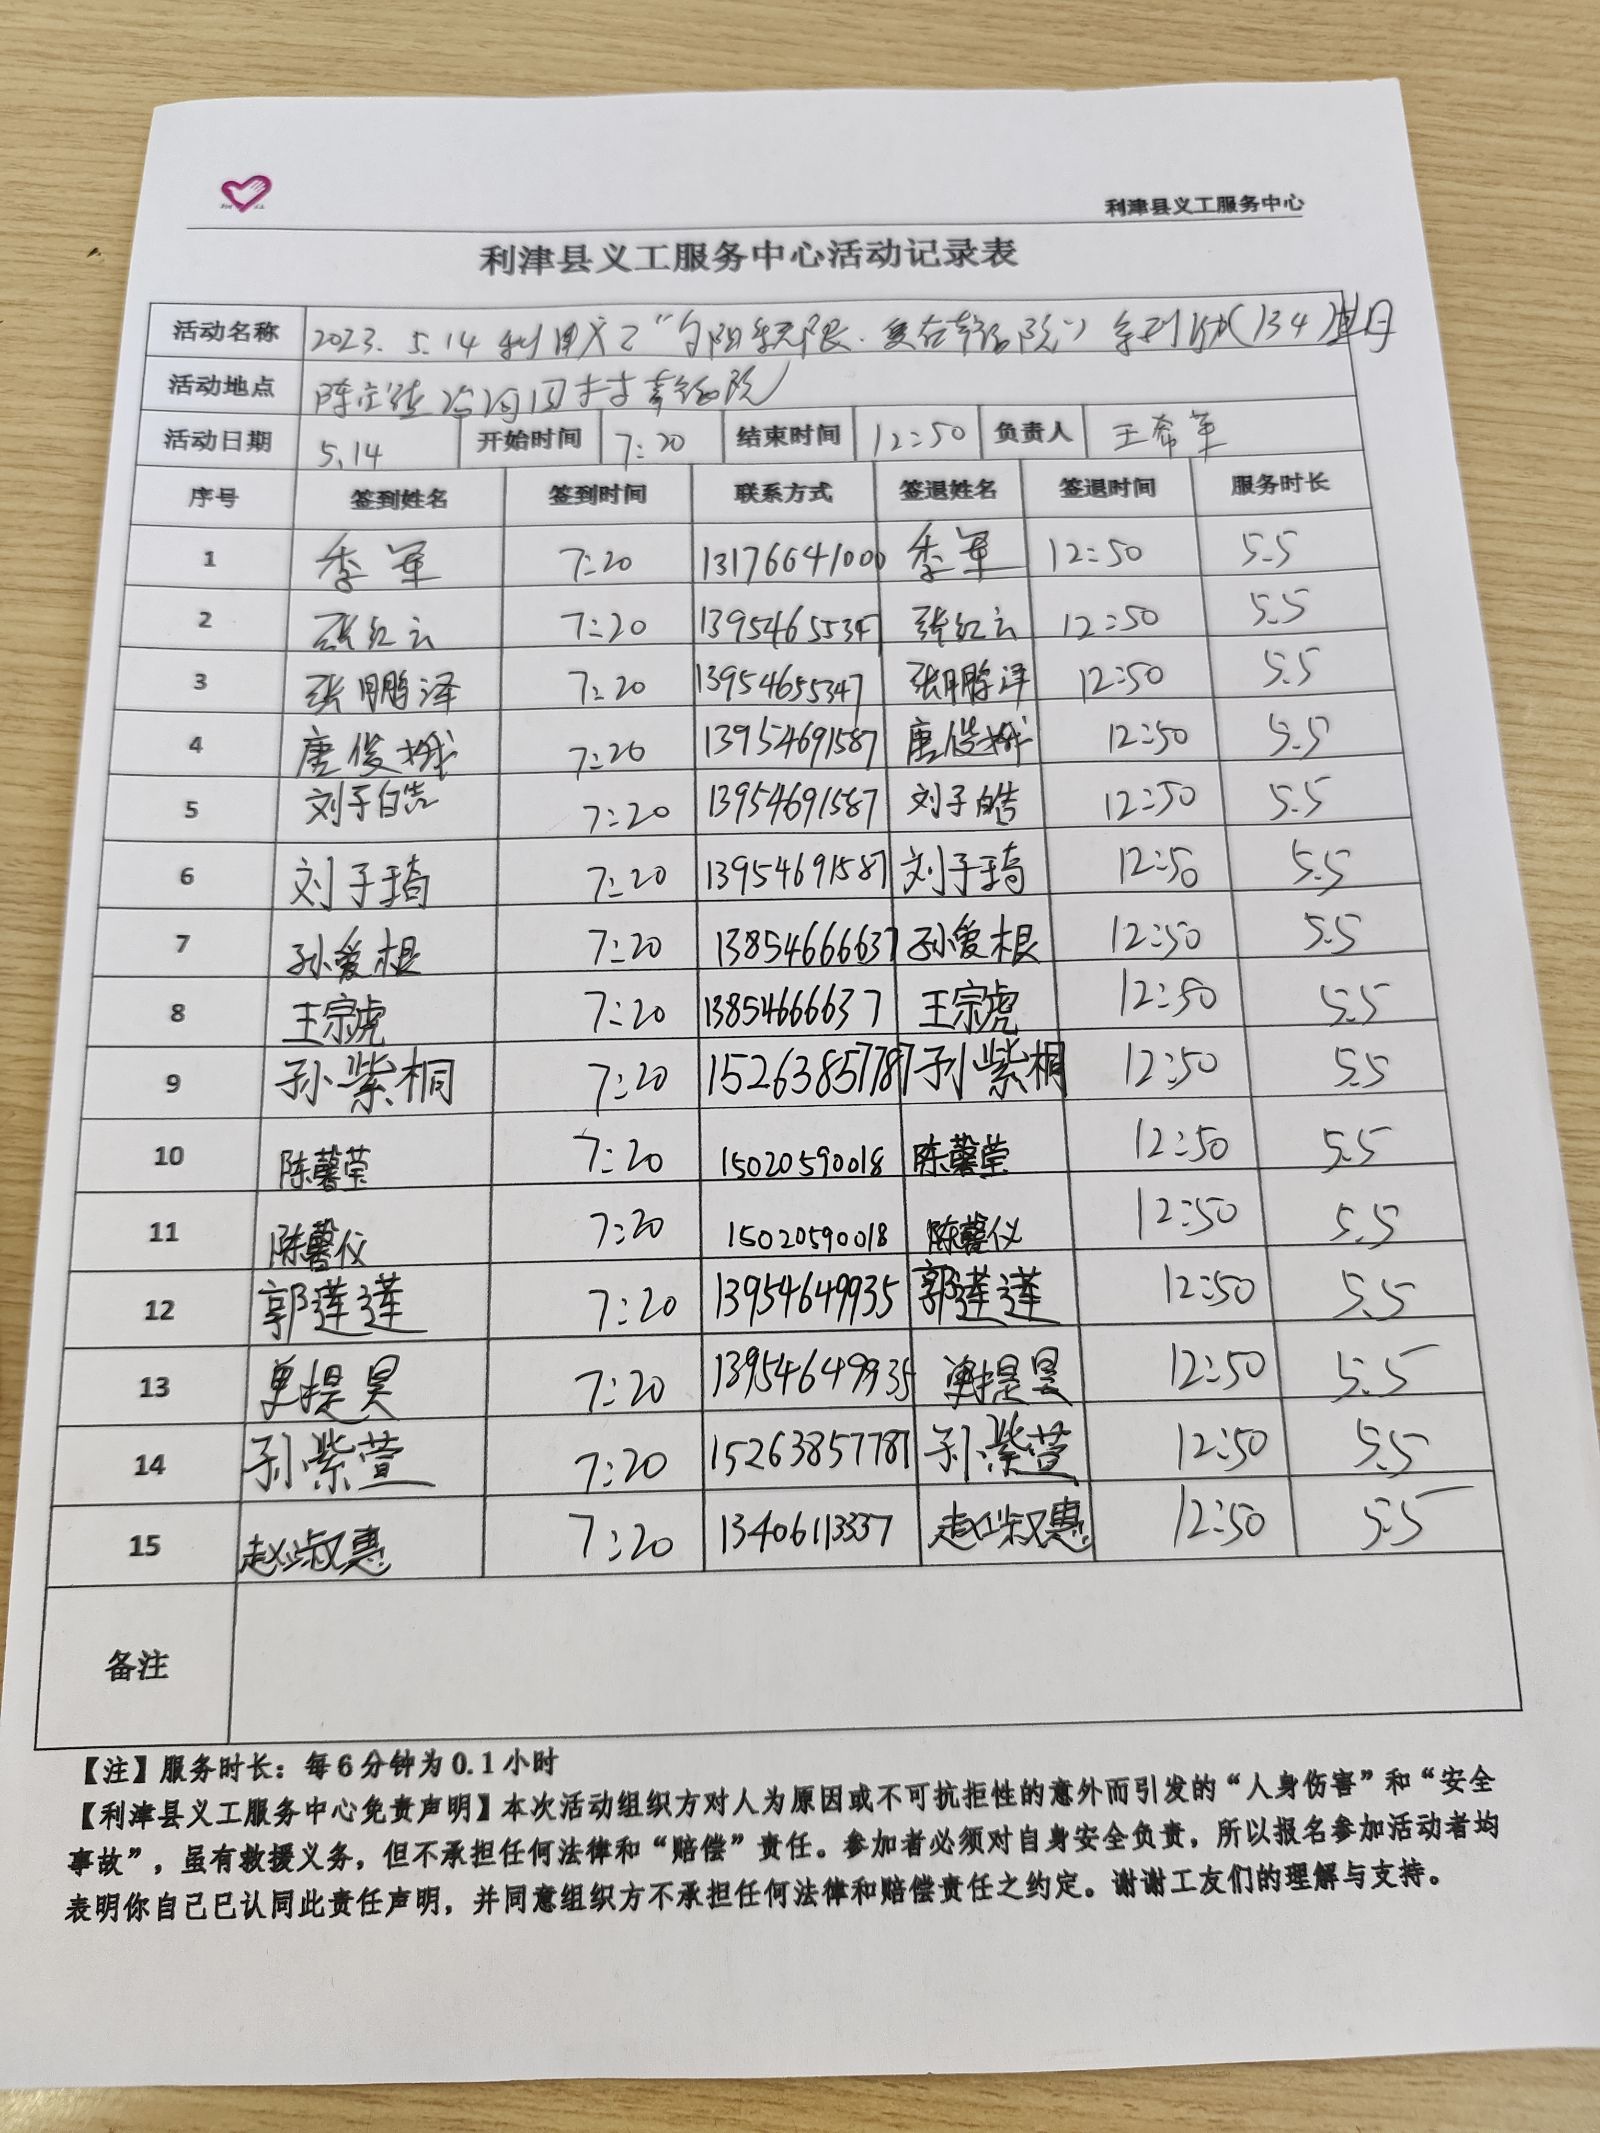 利津县义工服务中心
利津县义工服务中心活动记录表
活动名称 2023.5.14 利津义工“夕阳无限·爱在幸福院”系列(134)
活动地点 陈庄镇 村幸福院
活动日期 5.14 开始时间 7:20 结束时间 12:50 负责人 王希军
序号 签到姓名 签到时间 联系方式 签退姓名 签退时间 服务时长
1 季军 7:20 13176641000 季军 12:50 5.5
2 张红云 7:20 13954655347 张红云 12:50 5.5
3 张鹏泽 7:20 13954655347 张鹏泽 12:50 5.5
4 唐俊娥 7:20 13954691587 唐俊娥 12:50 5.5
5 刘子皓 7:20 13954691587 刘子皓 12:50 5.5
6 刘子琦 7:20 13954691587 刘子琦 12:50 5.5
7 孙爱根 7:20 13854666637 孙爱根 12:50 5.5
8 王宗虎 7:20 13854666637 王宗虎 12:50 5.5
9 孙紫桐 7:20 15263857787 孙紫桐 12:50 5.5
10 陈馨莹 7:20 15020590018 陈馨莹 12:50 5.5
11 陈馨仪 7:20 15020590018 陈馨仪 12:50 5.5
12 郭莲莲 7:20 13954649935 郭莲莲 12:50 5.5
13 7:20 13954649935 12:50 5.5
14 孙紫萱 7:20 15263857787 孙紫萱 12:50 5.5
15 赵淑惠 7:20 13406113337 赵淑惠 12:50 5.5
备注
【注】服务时长：每6分钟为0.1小时
【利津县义工服务中心免责声明】本次活动组织方对人为原因或不可抗拒性的意外而引发的“人身伤害”和“安全
事故”，虽有救援义务，但不承担任何法律和“赔偿”责任。参加者必须对自身安全负责，所以报名参加活动者均
表明你自己已认同此责任声明，并同意组织方不承担任何法律和赔偿责任之约定。谢谢工友们的理解与支持。